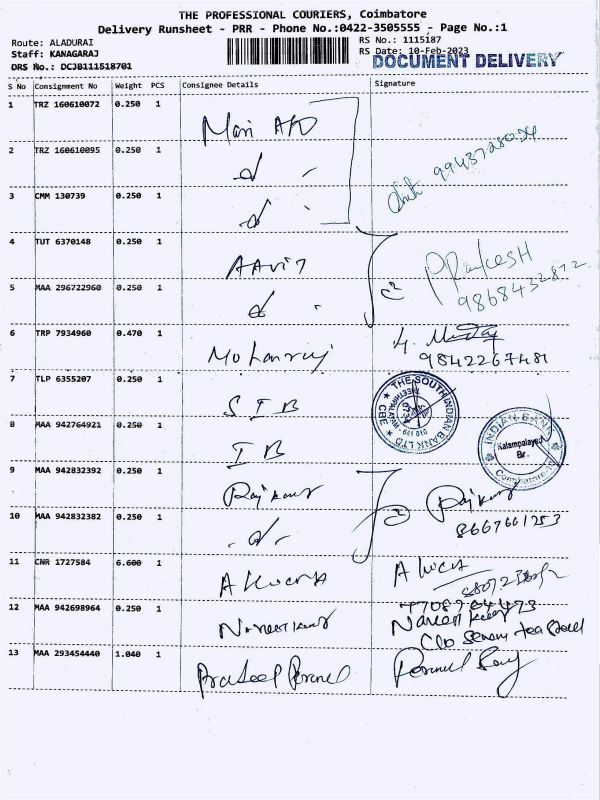 THE PROFESSIONAL COURIERS, Coimbatore
Delivery Runsheet - PRR - Phone No.:0422-3505555 - Page No.:1
Route: ALADURAI RS No.: 1115187
Staff: KANAGARAJ RS Date: 10-Feb-2023
DRS No.: DCJB111518701 DOCUMENT DELIVERY
S No Consignment No Weight PCS Consignee Details Signature
1 TRZ 160610072 0.250 1 Mani
2 TRZ 160610095 0.250 1 9943728034
3 CMM 130739 0.250 1
4 TUT 6370148 0.250 1 AAvin
5 MAA 296722960 0.250 1 9868432872
6 TRP 7934960 0.470 1 Mohanraj 9842267481
7 TLP 6355207 0.250 1 SIB THE SOUTH INDIAN BANK LTD CBE
8 MAA 942764921 0.250 1 IB INDIAN BANK Kalampalayam Br. Coimbatore
9 MAA 942832392 0.250 1 Rajkumar Rajkumar
10 MAA 942832382 0.250 1 8667661253
11 CNR 1727584 6.600 1
12 MAA 942698964 0.250 1 Naveen kumar Naveen kumar
13 MAA 293454440 1.040 1